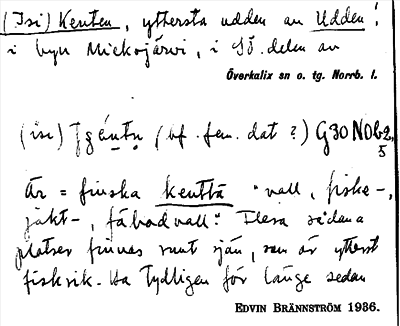 (Isi) Kenten, yttersta udden av Udden!
i byn Miekojärvi, i SÖ. delen av
Överkalix sn o. tg. Norrb. l.
(isi) (bf. fem. dat?) G30 NDb2,
5
är = finska kenttä "vall, fiske-,
jakt-, fäbodvall". Flera sådana
platser finnas runt sjön, som är ytterst
fiskrik. Ha tydligen för länge sedan
EDVIN BRÄNNSTRÖM 1936.